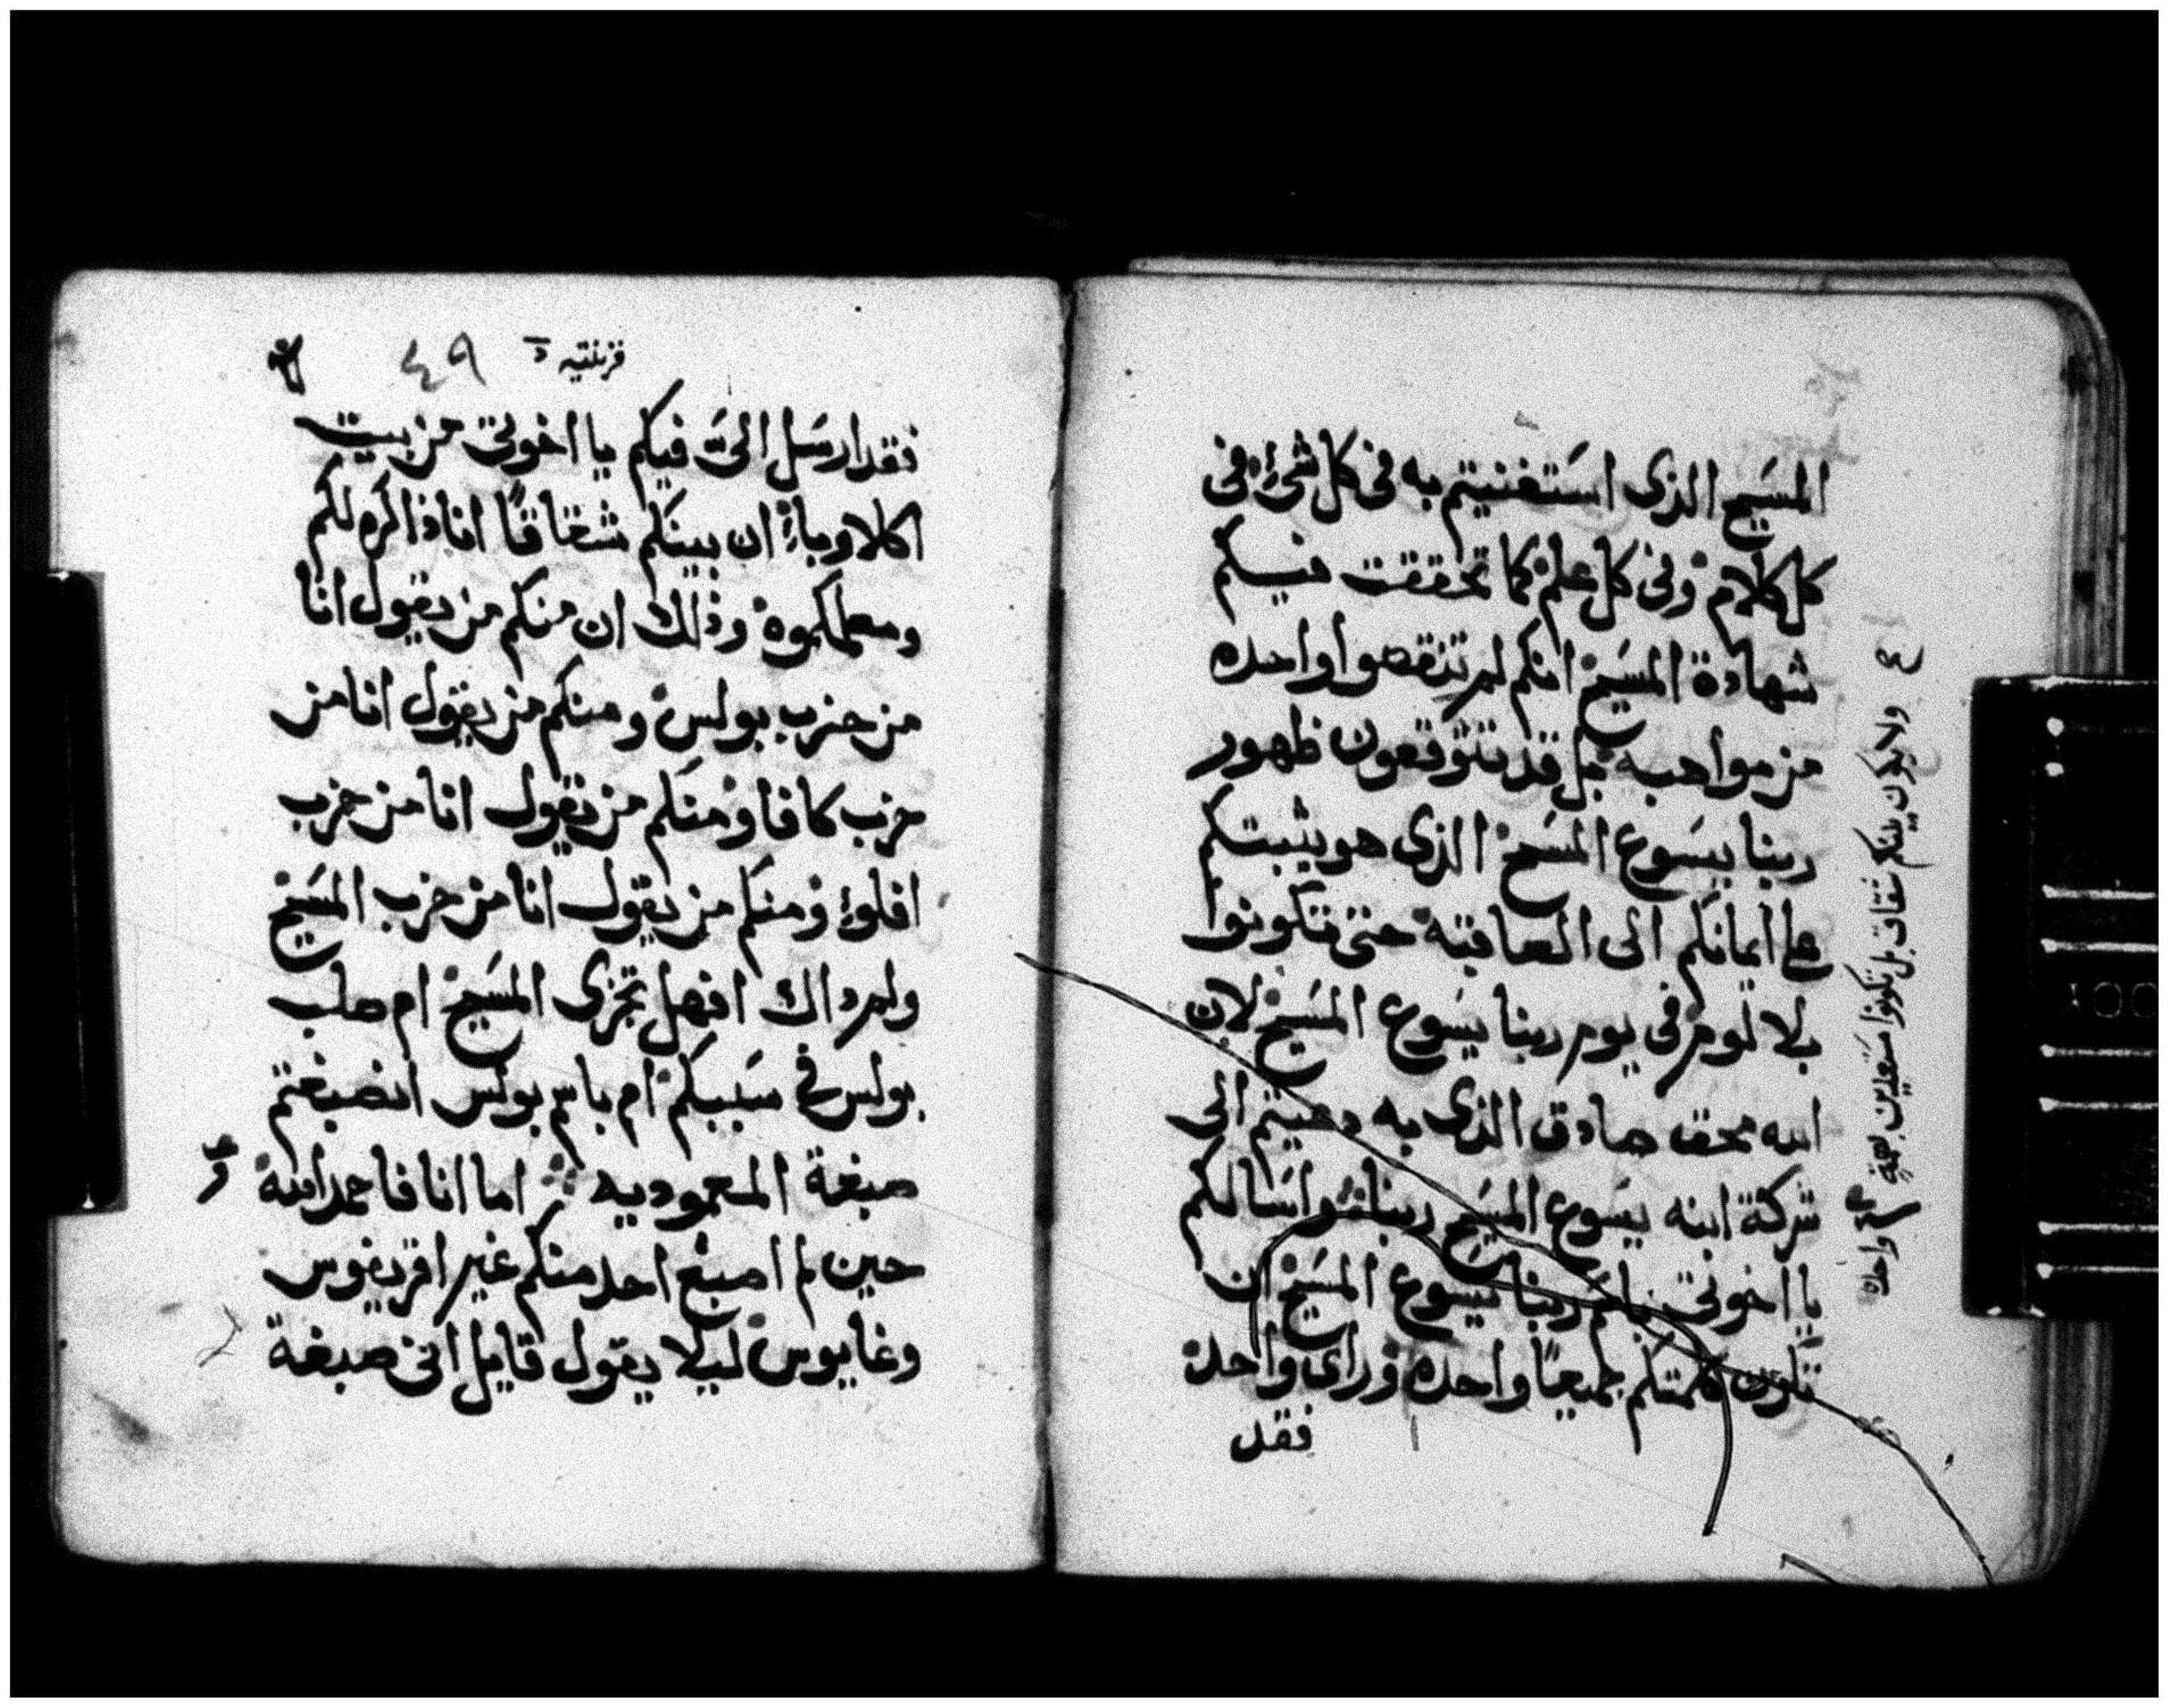 المسَيح الذى استَغنيتم به فى كل شىء فى
كل كلام وفى كل علم كما تحققت فيكم
شهادة المسَيح انكم لم تنقصوا واحده
من مواهبه بل قد تتوقعون ظهور
ربنا يسَوع المسَيح الذى هو يثبتكم
على ايمانكم الى العاقبه حتى تكونوا
بلا لوم فى يوم ربنا يسَوع المسَيح لان
الله محق صادق الذى به دعيتم الى
شركة ابنه يسَوع المسَيح ربنا واسَالكم
يا اخوتى باسم ربنا يسوع المسَيح ان
تكون كلمتكم جميعًا واحده وراى واحد
فقد
ولا يكون بينكم شقاق بل تكونوا مستعدين بهمة
واحده
قرنتيه
٤٩
فقد ارسَل الىَّ فيكم يا اخوتى من بيت
اكلاوباء ان بينكم شقاقًا انا ذاكره لكم
ومعلمكموه وذلك ان منكم من يقول انا
من حزب بولس ومنكم من يقول انا من
حزب كافا ومنكم من يقول انا من حزب
افلوا ومنكم من يقول انا من حزب المسَيح
ولم ذاك افهل تجزى المسَيح ام صلب
بولس فى سَببكم ام باسم بولس انصبغتم
صبغة المعموديه اما انا فاحمد الله
حين لم اصبغ احد منكم غير اقريفوس
وغايوس ليلا يقول قايل انى صبغة